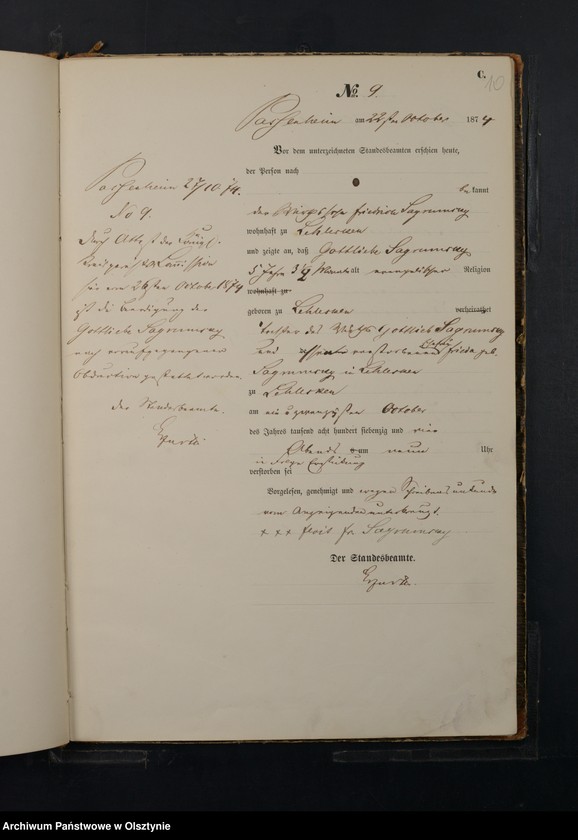 C.
10
№. 9.
Passenheim am 22ten October 1874
Vor dem unterzeichneten Standesbeamten erschien heute,
der Person nach
bekannt
der friedrich Sagromsky
wohnhaft zu Lehlesken
und zeigte an, daß Gottlieb Sagromsky
5 Jahr 3 1/2 Monate alt evangelischer Religion
wohnhaft zu
geboren zu Lehlesken verheirathet
des Gottlieb Sagromsky
und verstorbenen geb.
Sagromsky in Lehlesken
zu Lehlesken
am ein u zwanzigsten October
des Jahres tausend acht hundert siebenzig und vier
Abends um neun Uhr
in Folge
verstorben sei
Vorgelesen, genehmigt und wegen Schreibensunkunde
vom Anzeigenden unterkreuzt.
+ + + Sagromsky
Der Standesbeamte.
Passenheim 27/10 74.
No 9.
Durch Attest der Königl.
Kreisgerichts Commission
vom 26ten October 1874
ist die Beerdigung des
Gottlieb Sagromsky
nach vorausgegangener
Obduction gestattet worden.
Der Standesbeamte.
Archiwum Państwowe w Olsztynie